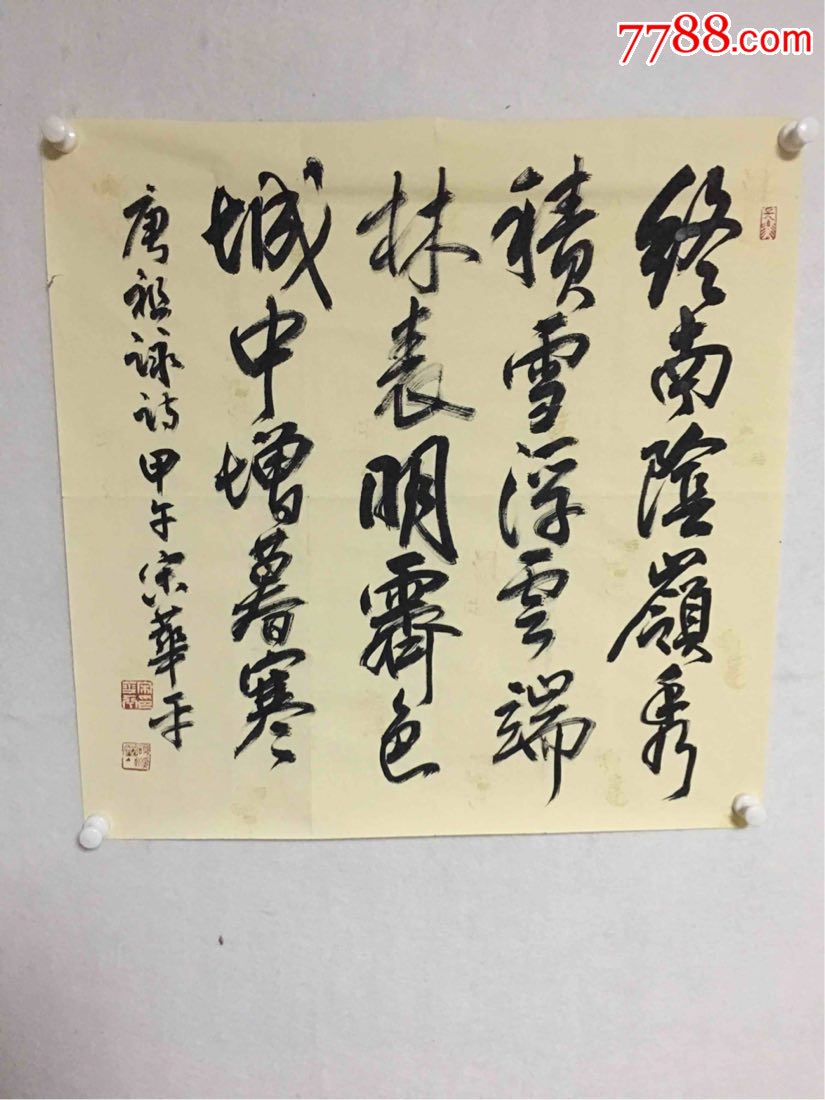 7788.com
終南陰嶺秀
積雪浮雲端
林表明霽色
城中增暮寒
唐祖詠詩甲午宋華平